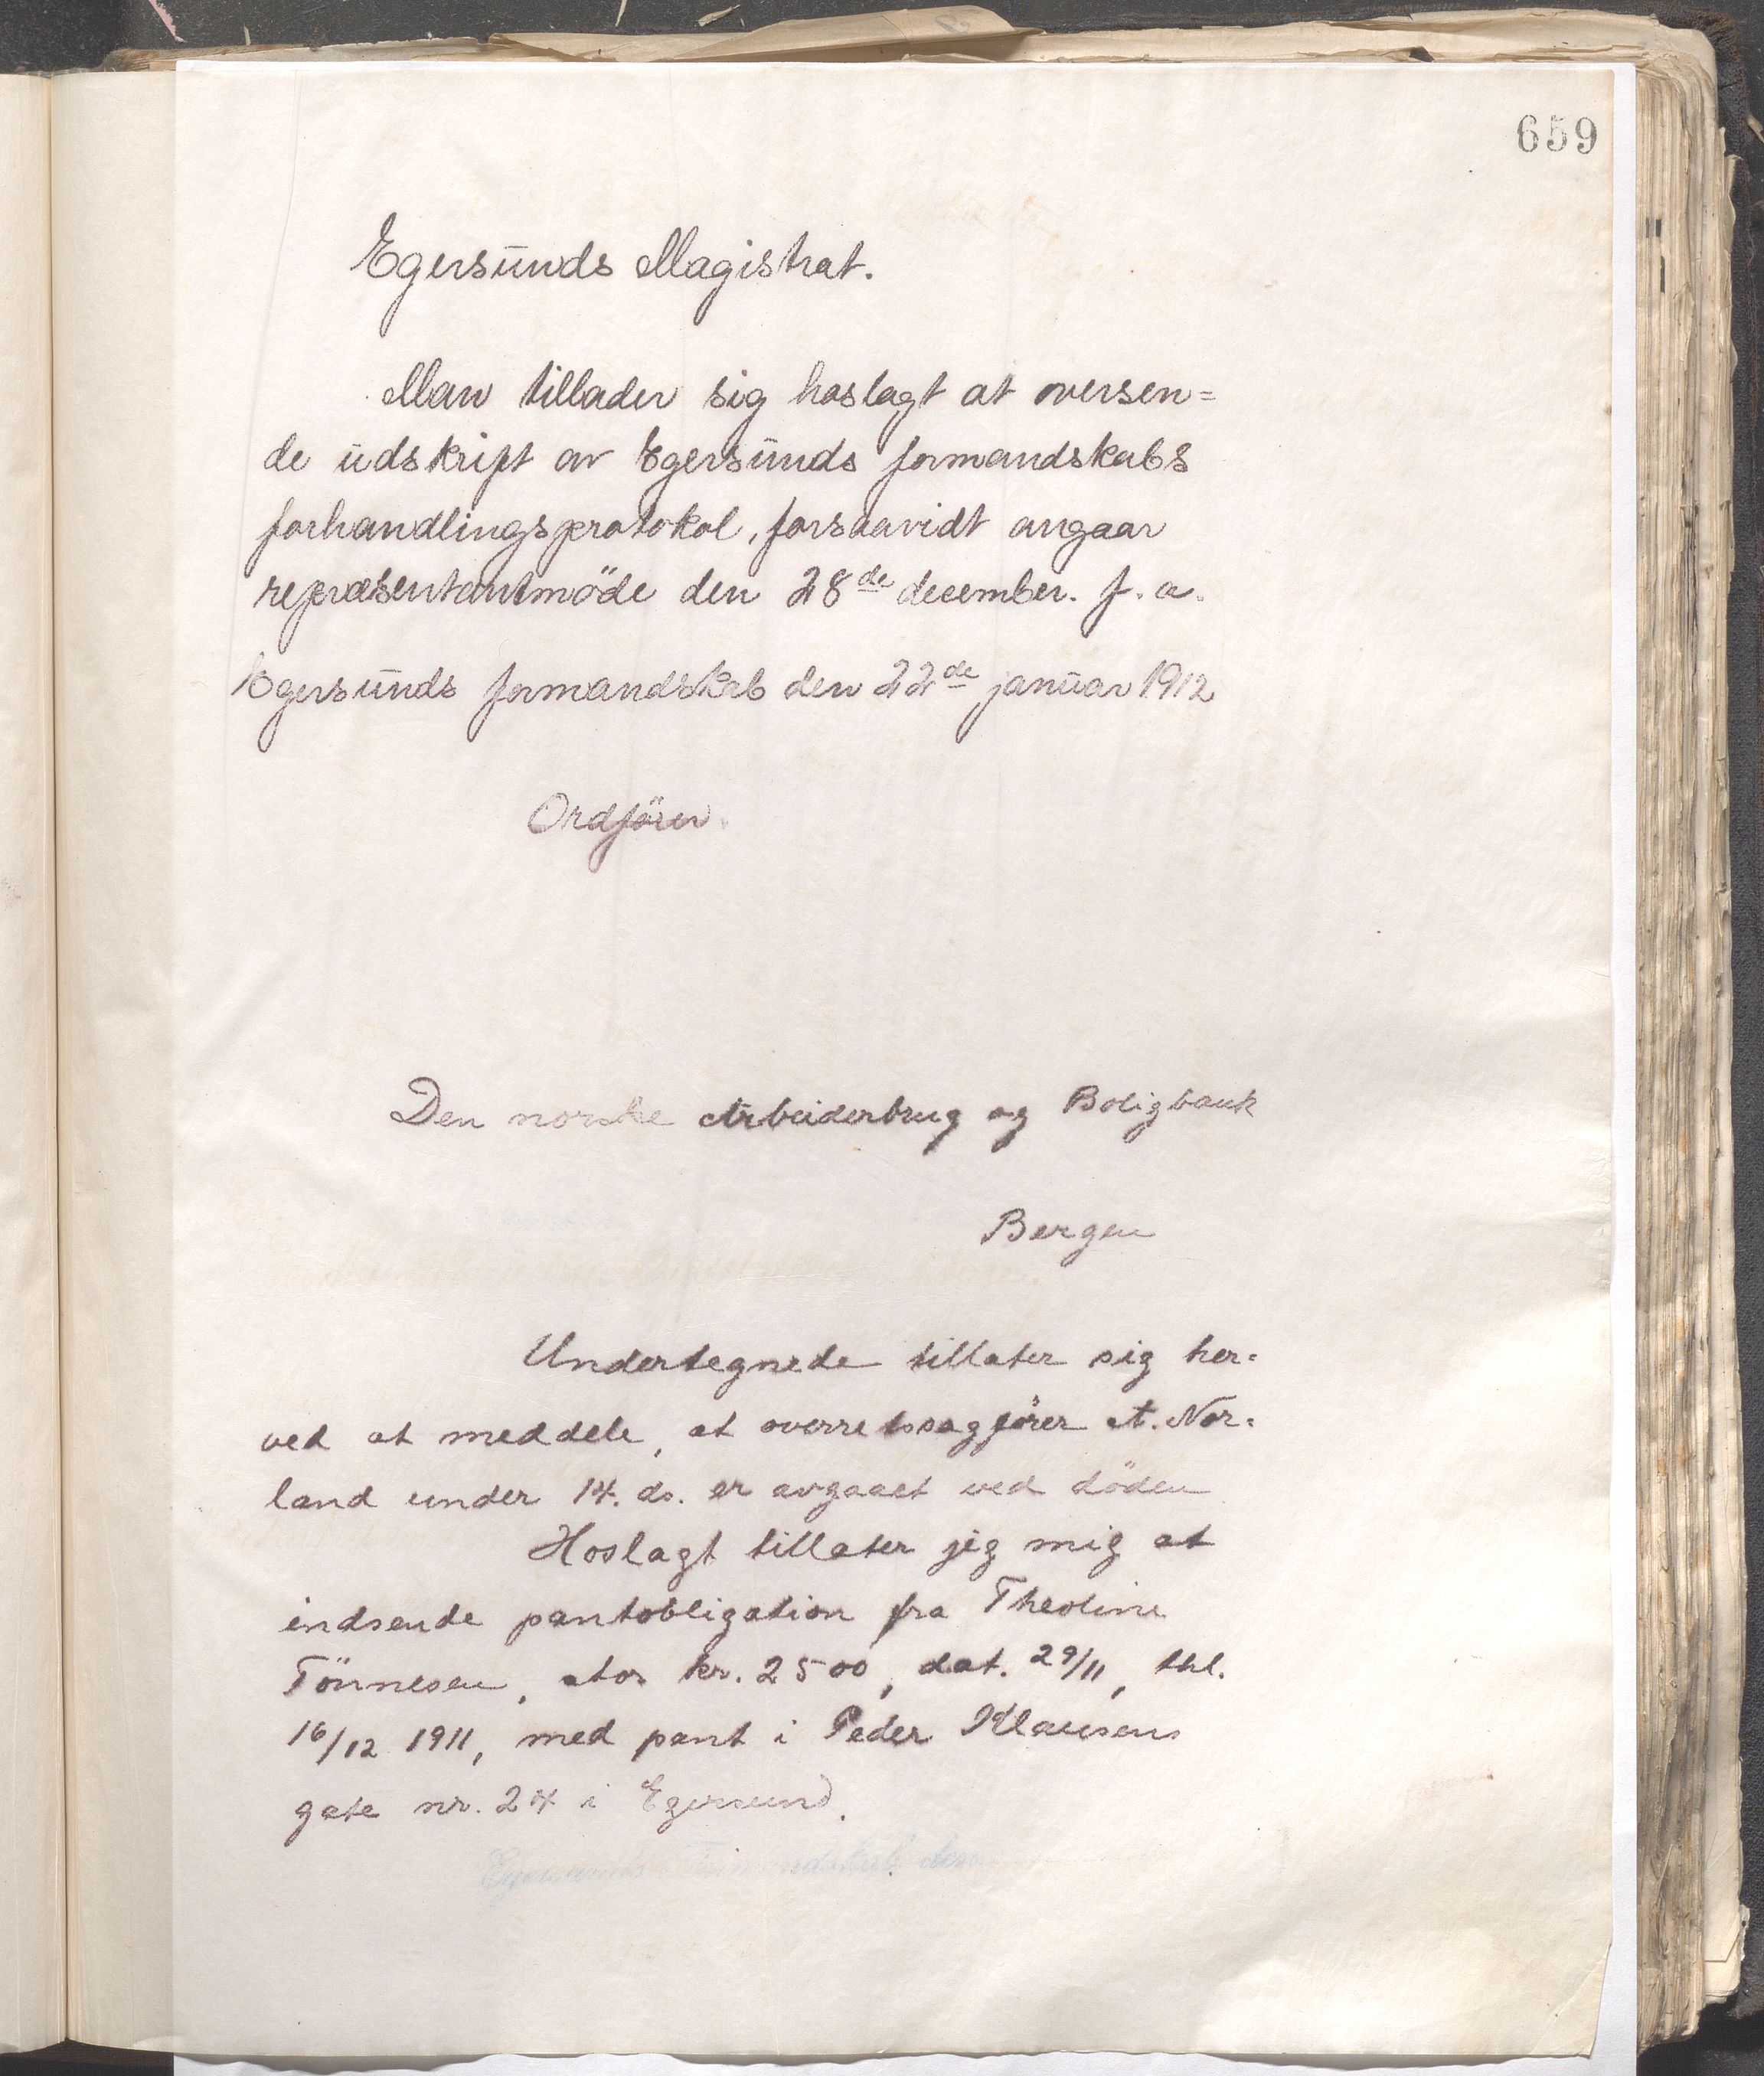 659
Egersunds Magistrat.
Man tillader sig hoslagt at oversen=
de udskrift av Egersunds formandskabs
forhandlingsprotokol, forsaavidt angaar
repræsentantmöde den 28de december. f. a.
Egersunds formandskab den 22de januar 1912
Ordförer.
Den norske Arbeiderbrug og Boligbank
Bergen
Undertegnede tillater sig her=
ved at meddele, at overretssagförer A. Nor=
land under 14. ds. er avgaaet ved döden
Hoslagt tillater jeg mig at
indsende pantobligation fra Theoline
Tönnesen, stor kr. 2500, dat. 29/11, thl.
16/12 1911, med pant i Peder Klausens
gate nr. 24 i Egersund.
Egersunds Formandskab den